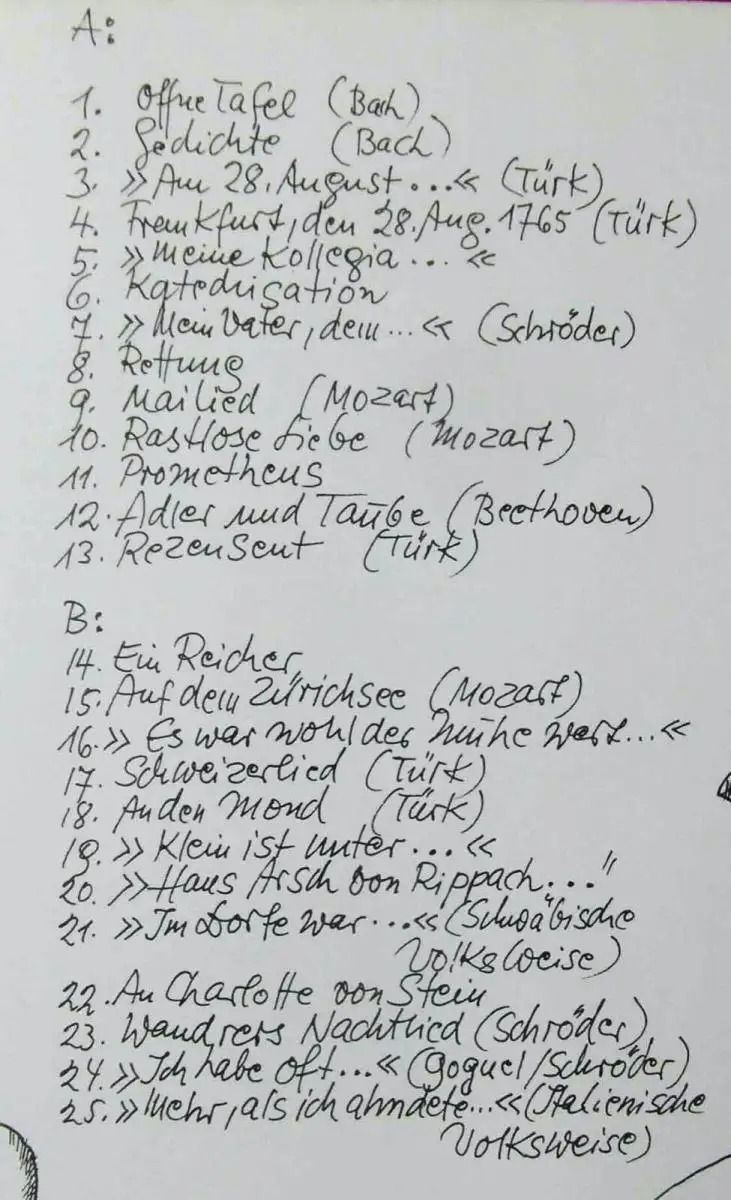 A:
1. Offne Tafel (Bach)
2. Gedichte (Bach)
3. »Am 28. August...« (Türk)
4. Frankfurt, den 28. Aug. 1765 (Türk)
5. »Meine Kollegia...«
6. Katechisation
7. »Mein Vater, dem...« (Schröder)
8. Rettung
9. Mailied (Mozart)
10. Rastlose Liebe (Mozart)
11. Prometheus
12. Adler und Taube (Beethoven)
13. Rezensent (Türk)
B:
14. Ein Reicher,
15. Auf dem Zürichsee (Mozart)
16. »Es war wohl der Mühe wert...«
17. Schweizerlied (Türk)
18. An den Mond (Türk)
19. »Klein ist unter...«
20. »Hans Arsch von Rippach..."
21. »Im Dorfe war...« (Schwäbische
Volksweise)
22. An Charlotte von Stein
23. Wandrers Nachtlied (Schröder)
24. »Ich habe oft...« (Goguel/Schröder)
25. »Mehr, als ich ahndete...« (Italienische
Volksweise)